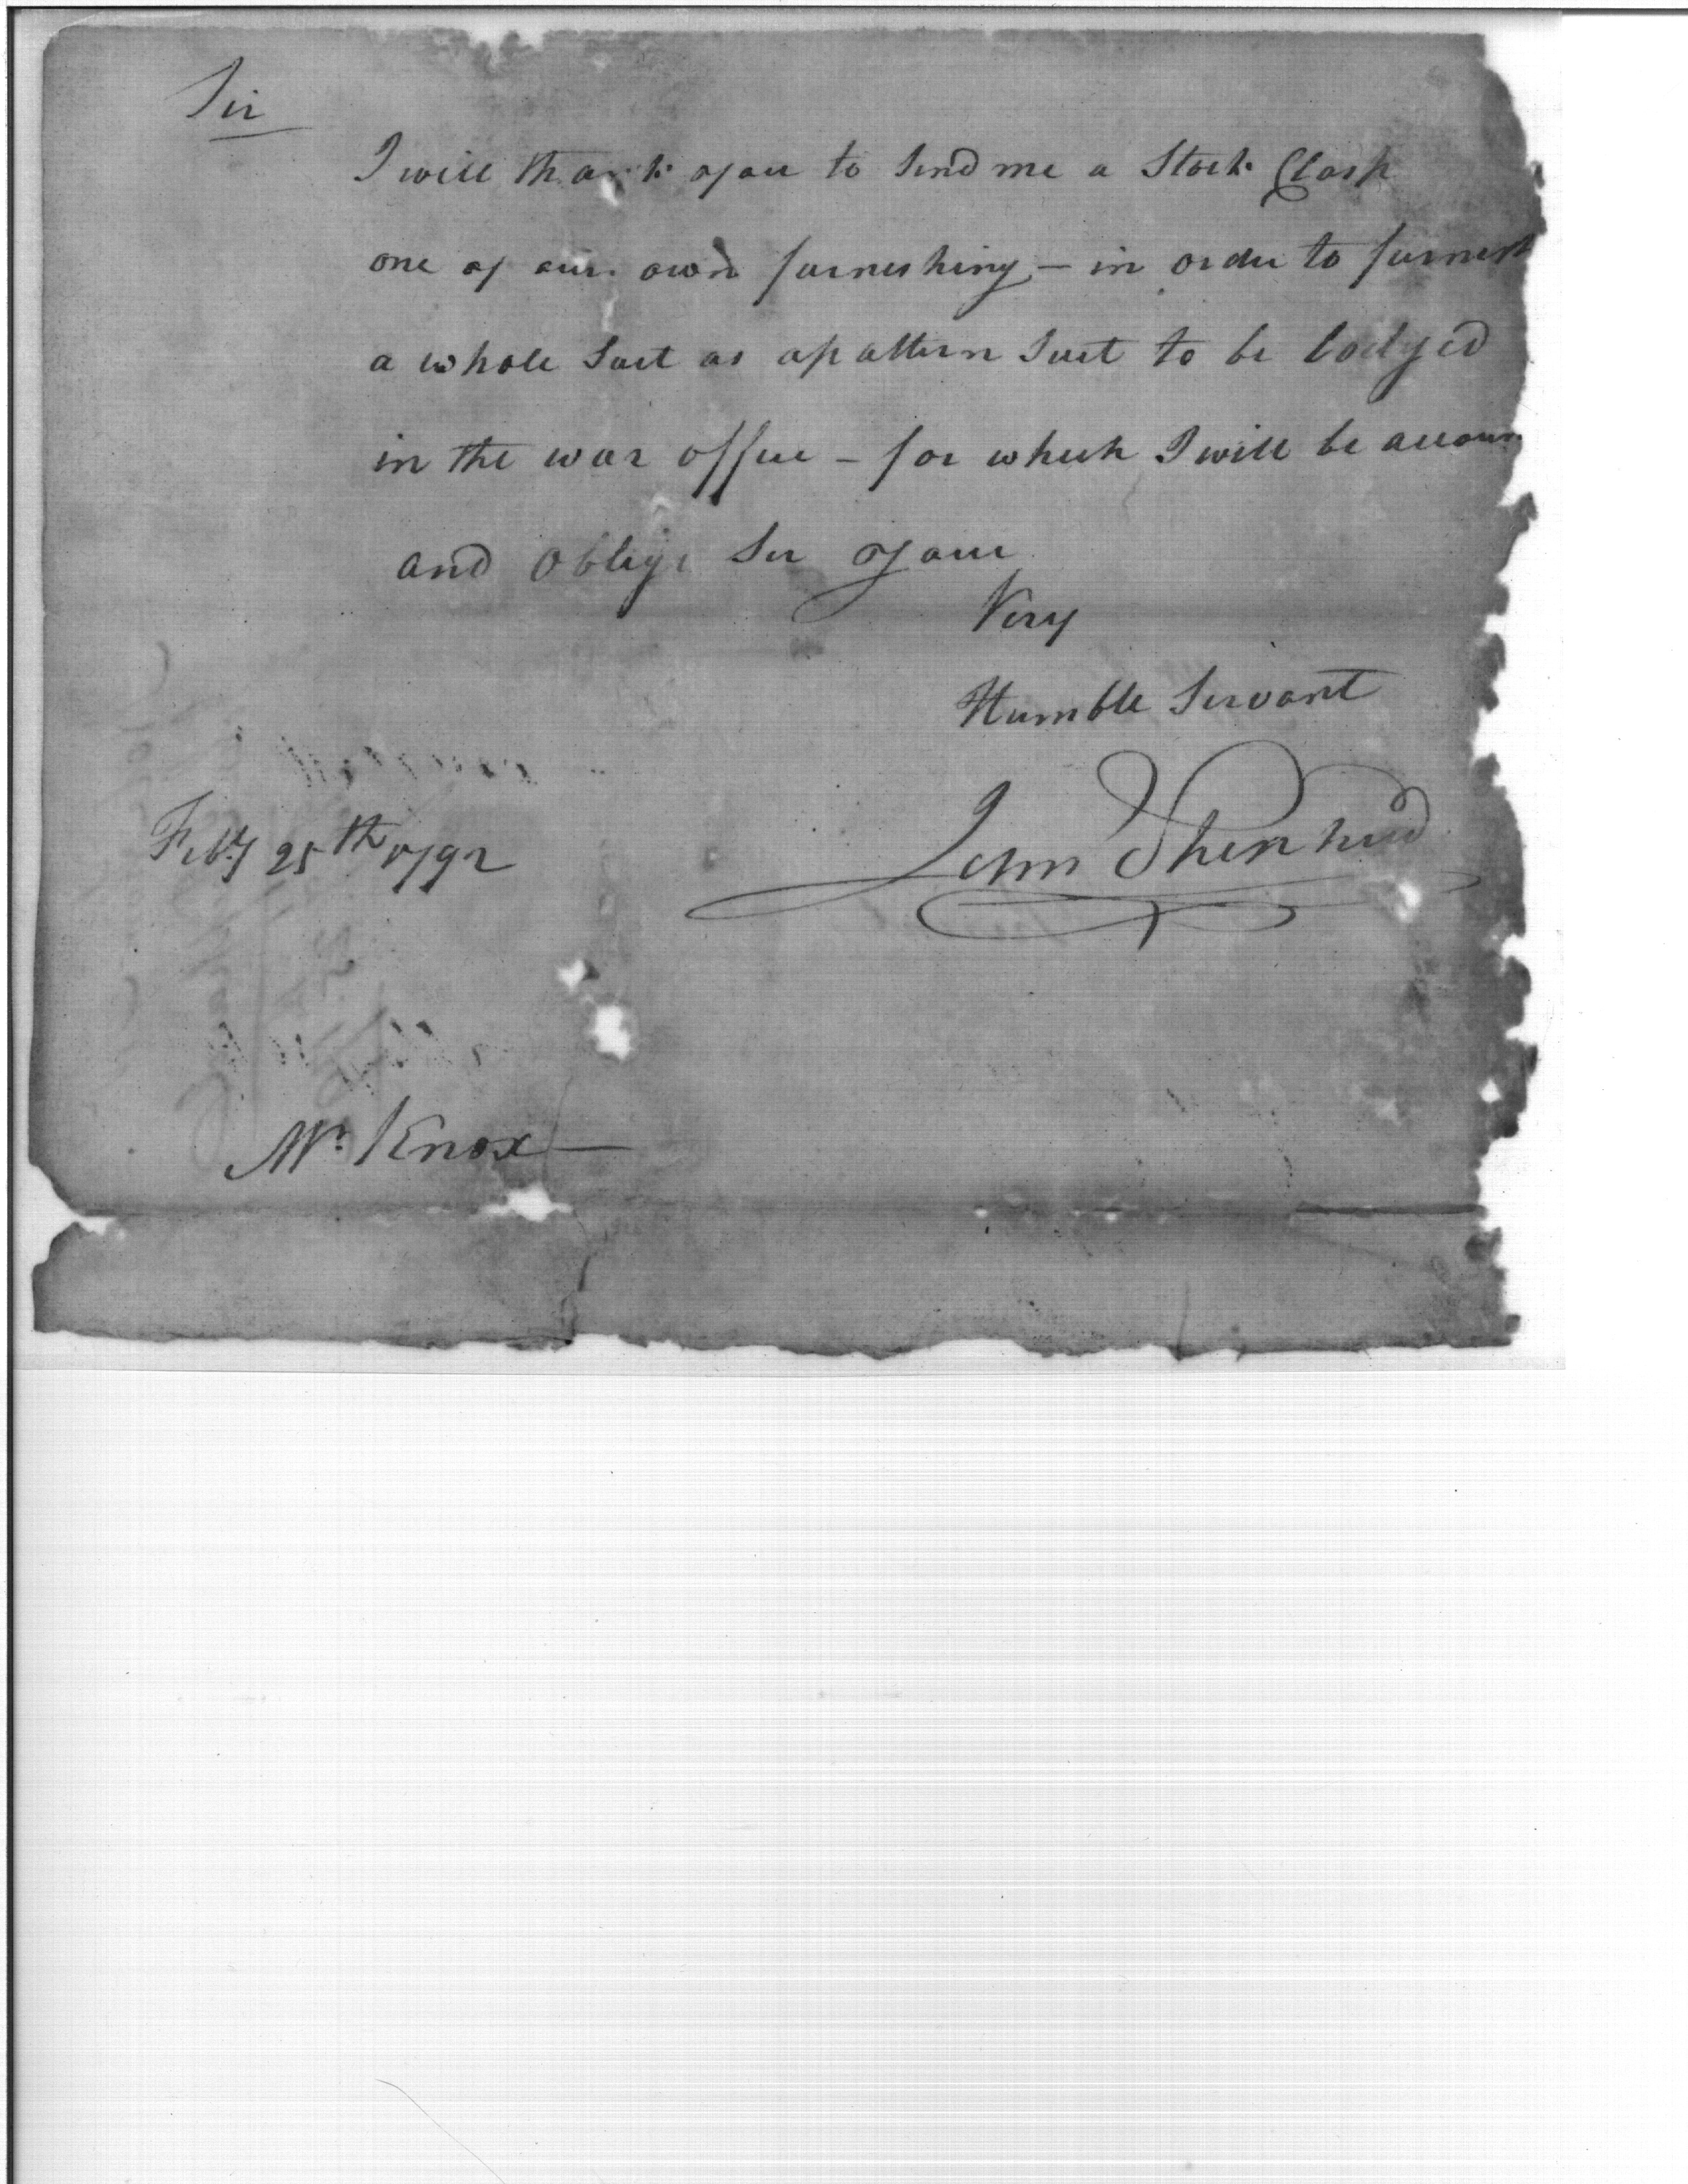 Sir
I will thank you to Send me a Stock Clasp
one of our own furneshing - in order to furnesh
a whole Suit as a pattern Suit to be lodged
in the war office - for which I will be accoun
and oblige Sir your
Very
Humble Servant
John Shephard
Feby 25th 1792
Mr. Knox